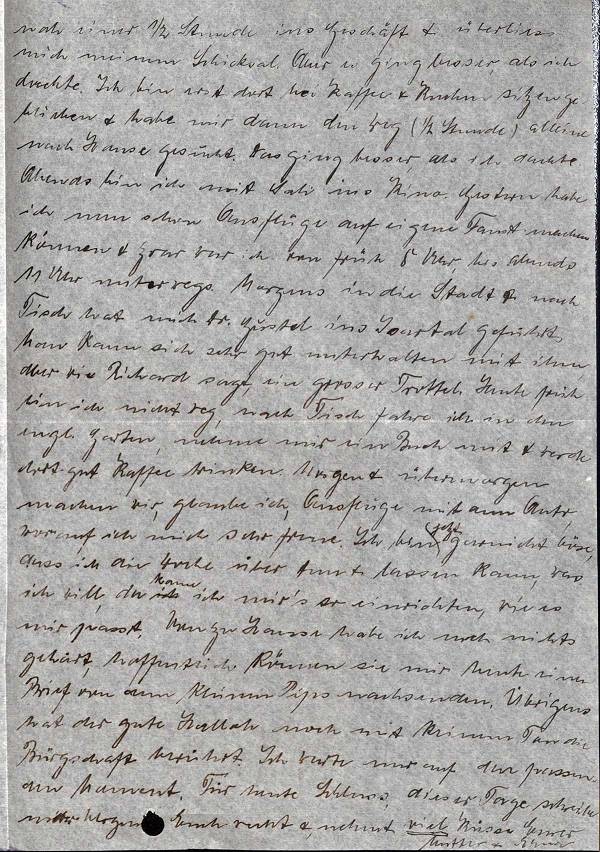 nach einer 1/2 Stunde ins Geschäft & überliess
mich meinem Schicksal. Aber es ging besser, als ich
dachte. Ich bin erst dort bei Kaffee & Kuchen sitzen ge
blieben & habe mir dann den Weg (1/2 Stunde) alleine
nach Hause gesucht. Das ging besser, als ich dachte.
Abends bin ich mit ins Kino. Gestern habe
ich nun schon Ausflüge auf eigene Faust machen
können & zwar war ich von früh 8 Uhr, bis abends
11 Uhr unterwegs. Morgens in die Stadt & nach
Tisch hat mich Dr. Gustel ins Isartal geführt.
Man kann sich sehr gut unterhalten mit ihm
aber wie Richard sagt, ein grosser Trottel. Heute früh
bin ich nicht weg, nach Tisch fahre ich in den
engl. Garten, nehme mir ein Buch mit & werde
dort gut Kaffee trinken. Morgen & übermorgen
machen wir, glaube ich, Ausflüge mit dem Auto,
worauf ich mich sehr freue. Ich bin jetzt garnicht böse,
dass ich die Woche über tun & lassen kann, was
ich will, da kann ich mir's so einrichten, wie es
mir passt. Von zu Hause habe ich noch nichts
gehört, hoffentlich können sie mir heute einen
Brief von dem kleinen Pips nachsenden. Übrigens
hat der gute noch mit keinem Ton die
Bürgschaft berührt. Ich warte nur auf den passen
den Moment. Für heute Schluss, dieser Tage schreibe
Euch recht & nehmt viel Küsse Eurer